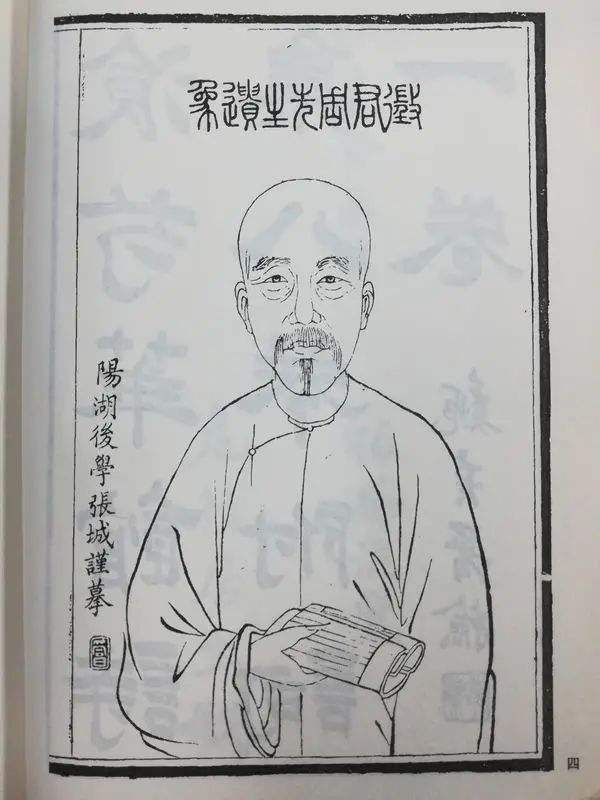 徵君周先生遺象
陽湖後學張城謹摹
四